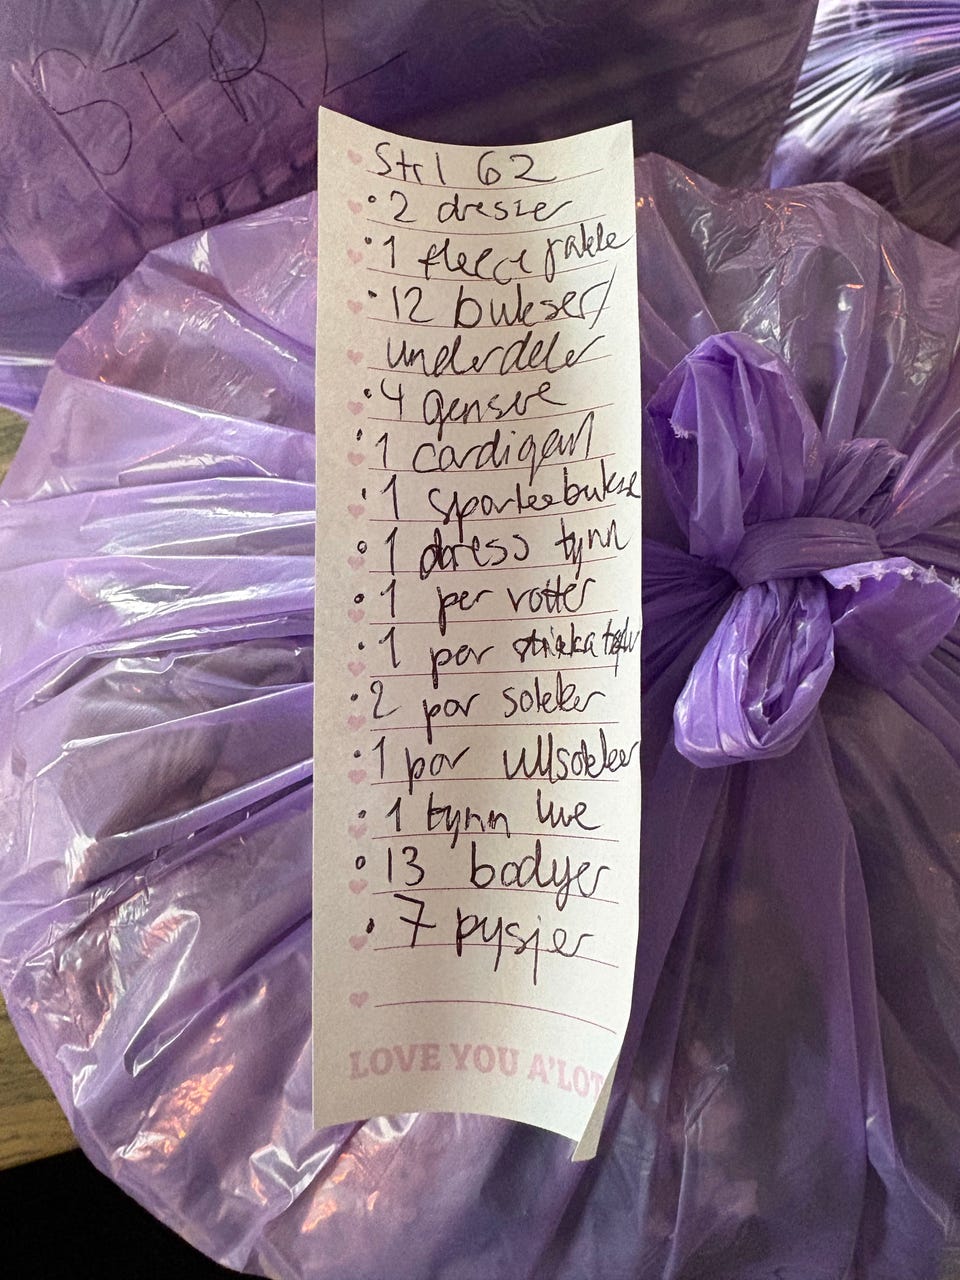 STRL
Strl 62
• 2 dresser
• 1 fleece jakke
• 12 bukser/
underdeler
• 4 gensere
• 1 cardigan
• 1 sparkebukse
• 1 dress tynn
• 1 par votter
• 1 par
• 2 par sokker
• 1 par ullsokker
• 1 tynn lue
• 13 bodyer
• 7 pysjer
LOVE YOU A'LOT